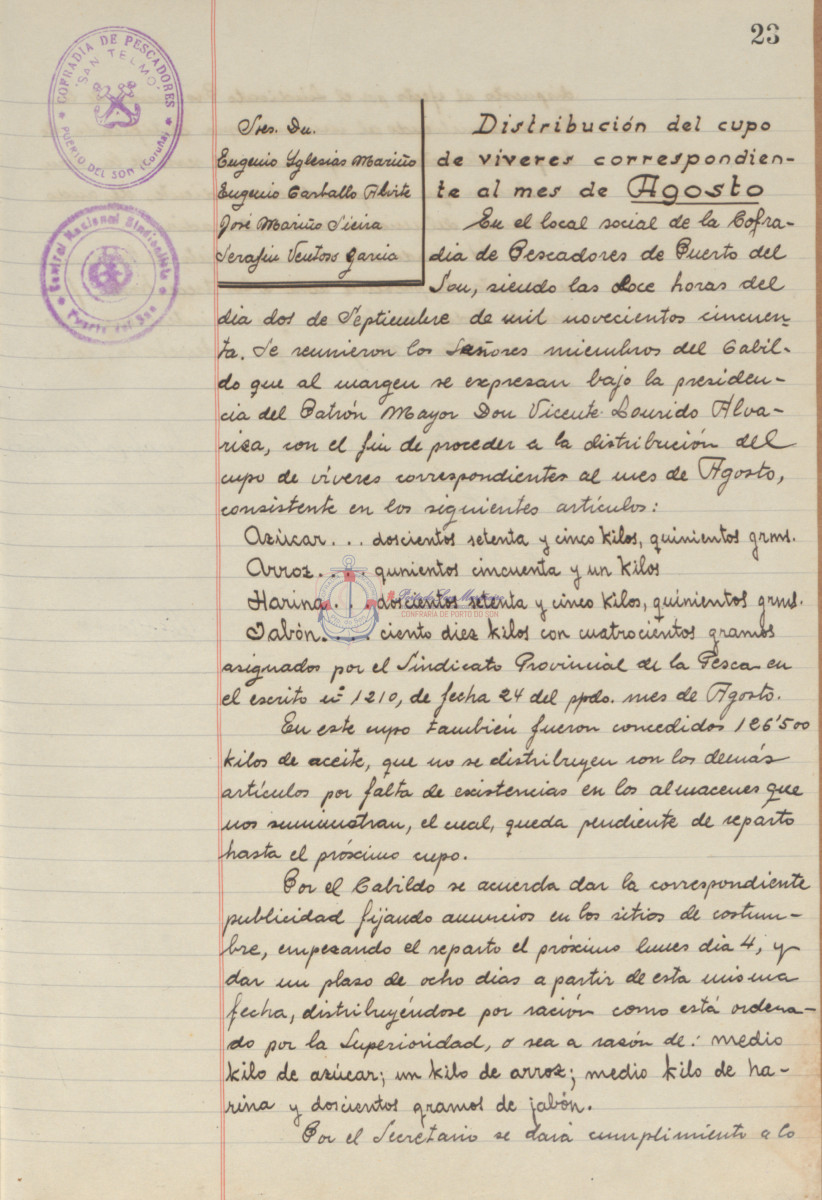 23
COFRADIA DE PESCADORES
"SAN TELMO"
PUERTO DEL SON (Coruña)
Central Nacional Sindicalista
Puerto del Son
Sres. Dn.
Eugenio Yglesias Mariño
Eugenio Carballo Alvite
José Mariño Sieira
Serafín Ventoso García
Distribución del cupo
de viveres correspondien-
te al mes de Agosto
En el local social de la Cofra-
dia de Pescadores de Puerto del
Son, siendo las doce horas del
dia dos de Septiembre de mil novecientos cincuen-
ta. Se reunieron los Señores miembros del Cabil-
do que al margen se expresan bajo la presiden-
cia del Patrón Mayor Don Vicente Lourido Alva-
riza, con el fin de proceder a la distribución del
cupo de víveres correspondientes al mes de Agosto,
consistente en los siguientes artículos:
Azúcar... doscientos setenta y cinco kilos, quinientos grms.
Arroz..... qunientos cincuenta y un kilos
Harina.... doscientos setenta y cinco kilos, quinientos grms.
Jabón..... ciento diez kilos con cuatrocientos gramos
CONFRARÍA DE PORTO DO SON
asignados por el Sindicato Provincial de la Pesca en
el escrito nº 1210, de fecha 24 del ppdo. mes de Agosto.
En este cupo también fueron concedidos 126'500
kilos de aceite, que no se distribuyen con los demás
artículos por falta de existencias en los almacenes que
nos suministran, el cual, queda pendiente de reparto
hasta el próximo cupo.
Por el Cabildo se acuerda dar la correspondiente
publicidad fijando anuncios en los sitios de costum-
bre, empezando el reparto el próximo lunes dia 4, y
dar un plazo de ocho dias a partir de esta misma
fecha, distribuyéndose por ración como está ordena-
do por la Superioridad, o sea a razón de: medio
kilo de azúcar; un kilo de arroz; medio kilo de ha-
rina y doscientos gramos de jabón.
Por el Secretario se dará cumplimiento a lo